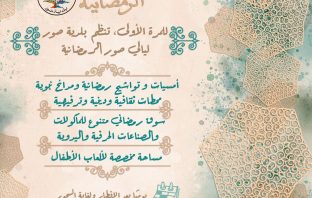 الرمضانية
للمرة الأولى، تنظم بلدية صور
ليالي صور الرمضانية
أمسيات و تواشيح رمضانية ومدائح نبوية
محطات ثقافية ودينية وترفيهية
سوق رمضاني متنوع للمأكولات
والصناعات الحرفية واليدوية
مساحة مخصصة لألعاب الأطفال
الإفطار ولغاية السحور